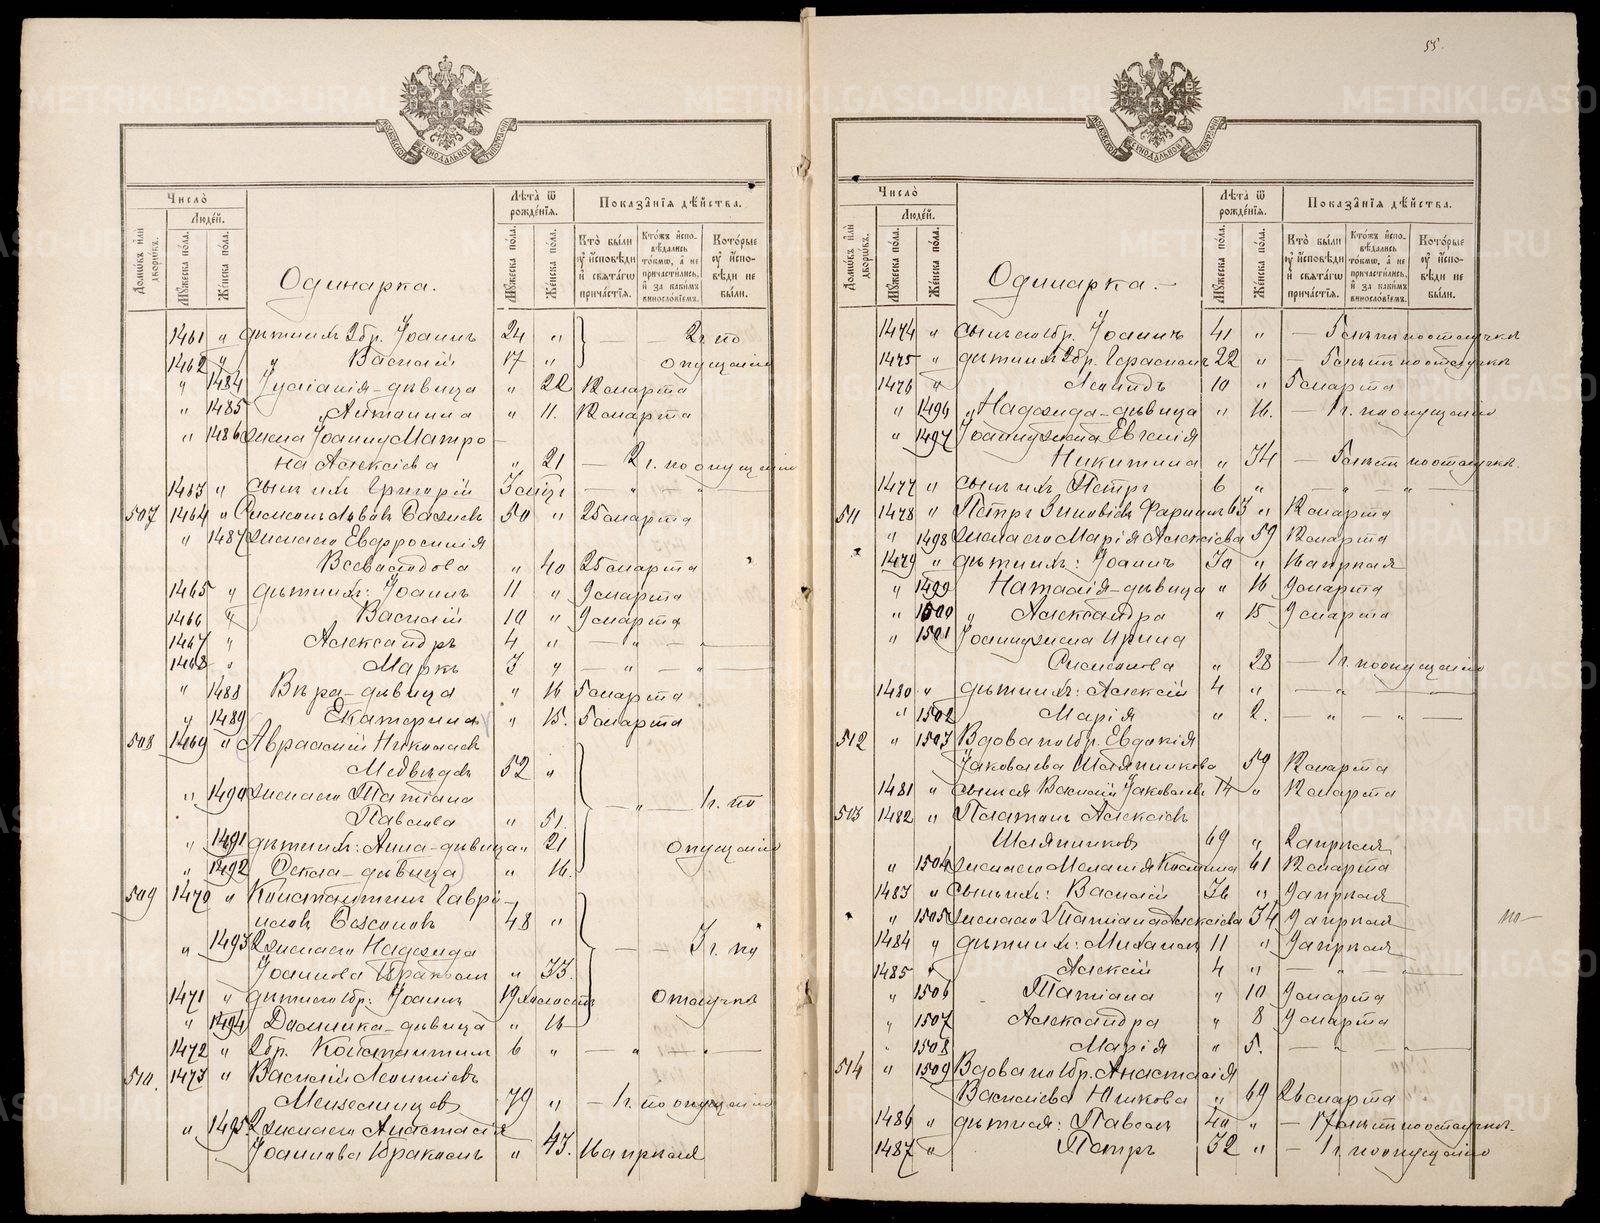 55.
Число̀
Людей.
Домѡвъ илѝ дворѡвъ.
Мꙋжеска пола.
Женска пола.
Лѣта̀ ѿ рожденїѧ.
Мꙋжеска пола.
Женска пола.
Показанїѧ дѣйства.
Кто̀ были ᲂу҆ исповѣди и҆ свѧтагѡ причастїѧ.
Ктожъ исповѣдались токмѡ, а҆ не причастились, и҆ за какимъ винословїемъ.
Которые ᲂу҆ исповѣди не были.
Одинарка.
1461 " дѣти ихъ 2 бр. Іоаннъ 24 " — — 2 г. по
1462 " " Василій 17 " опущенію
" 1484 Іуліанія-дѣвица " 22 12 марта
" 1485 Антонина " 11. 12 марта
" 1486 жена Іоанну Матро-
на Алексіева " 21 — 2 г. по опущенію
1463 " сынъ ихъ Григорій 3 мѣс. — " — " —
507 1464 " 50 " 25 марта
" 1487 жена его Евфросинія
" 40 25 марта
1465 " дѣти ихъ: Іоаннъ 11 " 9 марта
1466 " Василій 10 " 9 марта
1467 " Александръ 4 " — " — " —
1468 " Маркъ 3 " — " — " —
" 1488 Вѣра-дѣвица " 16 5 марта
" 1489 Екатерина " 15. 5 марта
508 1469 " Авраамій Николаевъ
Медвѣдевъ 52 "
" 1490 жена его Татіана — " — 1 г. по
Павлова " 51.
" 1491 дѣти ихъ: Анна-дѣвица " 21 опущенію
" 1492 Ѳекла-дѣвица " 16.
509 1470 " Константинъ Гаврі-
иловъ 48 "
" 1493 2 жена его Надежда — — 3 г. по
Іоаннова бракомъ " 33.
1471 " дѣти его 1 бр: Іоаннъ 19 холостъ отлучкѣ
" 1494 Домника-дѣвица " 16
1472 " 2 бр. Константинъ 6 " — " — " —
510. 1473 " Василій Леонтіевъ
Мензелинцевъ 79 " — 1 г. по опущенію
" 1495 2 жена его Анастасія
Іоаннова бракомъ " 43. 16 апрѣля
Число̀
Людей.
Домѡвъ илѝ дворѡвъ.
Мꙋжеска пола.
Женска пола.
Лѣта̀ ѿ рожденїѧ.
Мꙋжеска пола.
Женска пола.
Показанїѧ дѣйства.
Кто̀ были ᲂу҆ исповѣди и҆ свѧтагѡ причастїѧ.
Ктожъ исповѣдались токмѡ, а҆ не причастились, и҆ за какимъ винословїемъ.
Которые ᲂу҆ исповѣди не были.
Одинарка.
1474 " сынъ его 1 бр. Іоаннъ 41 " — 5 лѣтъ по отлучкѣ
1475 " дѣти ихъ 2 бр. Герасимъ 22 " — 5 лѣтъ по отлучкѣ
1476 " Леонидъ 10 " 5 марта
" 1496 " Надежда-дѣвица " 16. — 1 г. по опущенію
" 1497 Іоанну жена Евгенія
Никитина " 34 — 5 лѣтъ по отлучкѣ.
1477 " сынъ ихъ Петръ 6 " — " — " —
511 1478 " Петръ Зиновіевъ 63 " 12 марта
" 1498 жена его Марія Алексіева 59 12 марта
1479 " дѣти ихъ: Іоаннъ 30 " 16 апрѣля
" 1499 Наталія-дѣвица " 16 9 марта
" 1500 " Александра " 15 9 марта
" 1501 Іоанну жена Ирина
Симеонова " 28 — 1 г. по опущенію
1480 " дѣти ихъ: Алексій 4 " — " — " —
" 1502 Марія " 2. — " — " —
512 " 1503 Вдова по 1 бр. Евдокія
Іаковлева Шляпникова 59 12 марта
1481 " сынъ ея Василій Іаковлевъ 14 " 12 марта
513 1482 " Платонъ Алексіевъ
Шляпниковъ 69 " 2 апрѣля
" 1504 жена его Меланія 61 12 марта
1483 " сынъ ихъ: Василій 36 " 9 апрѣля
" 1505 жена его Татіана Алексіева 34 9 апрѣля по
1484 " дѣти ихъ: Михаилъ 11 " 9 апрѣля
1485 " Алексій 4 " — " — " —
" 1506 Татіана " 10 9 марта
" 1507 Александра " 8 9 марта
" 1508 Марія " 5. — " — " —
514 " 1509 Вдова по 1 бр. Анастасія
Василіева " 69 26 марта
1486 " дѣти ея: Павелъ 40 " — 17 лѣтъ по отлучкѣ.
1487 " Петръ 32 " — 1 г. по опущенію
METRIKI.GASO-URAL.RU